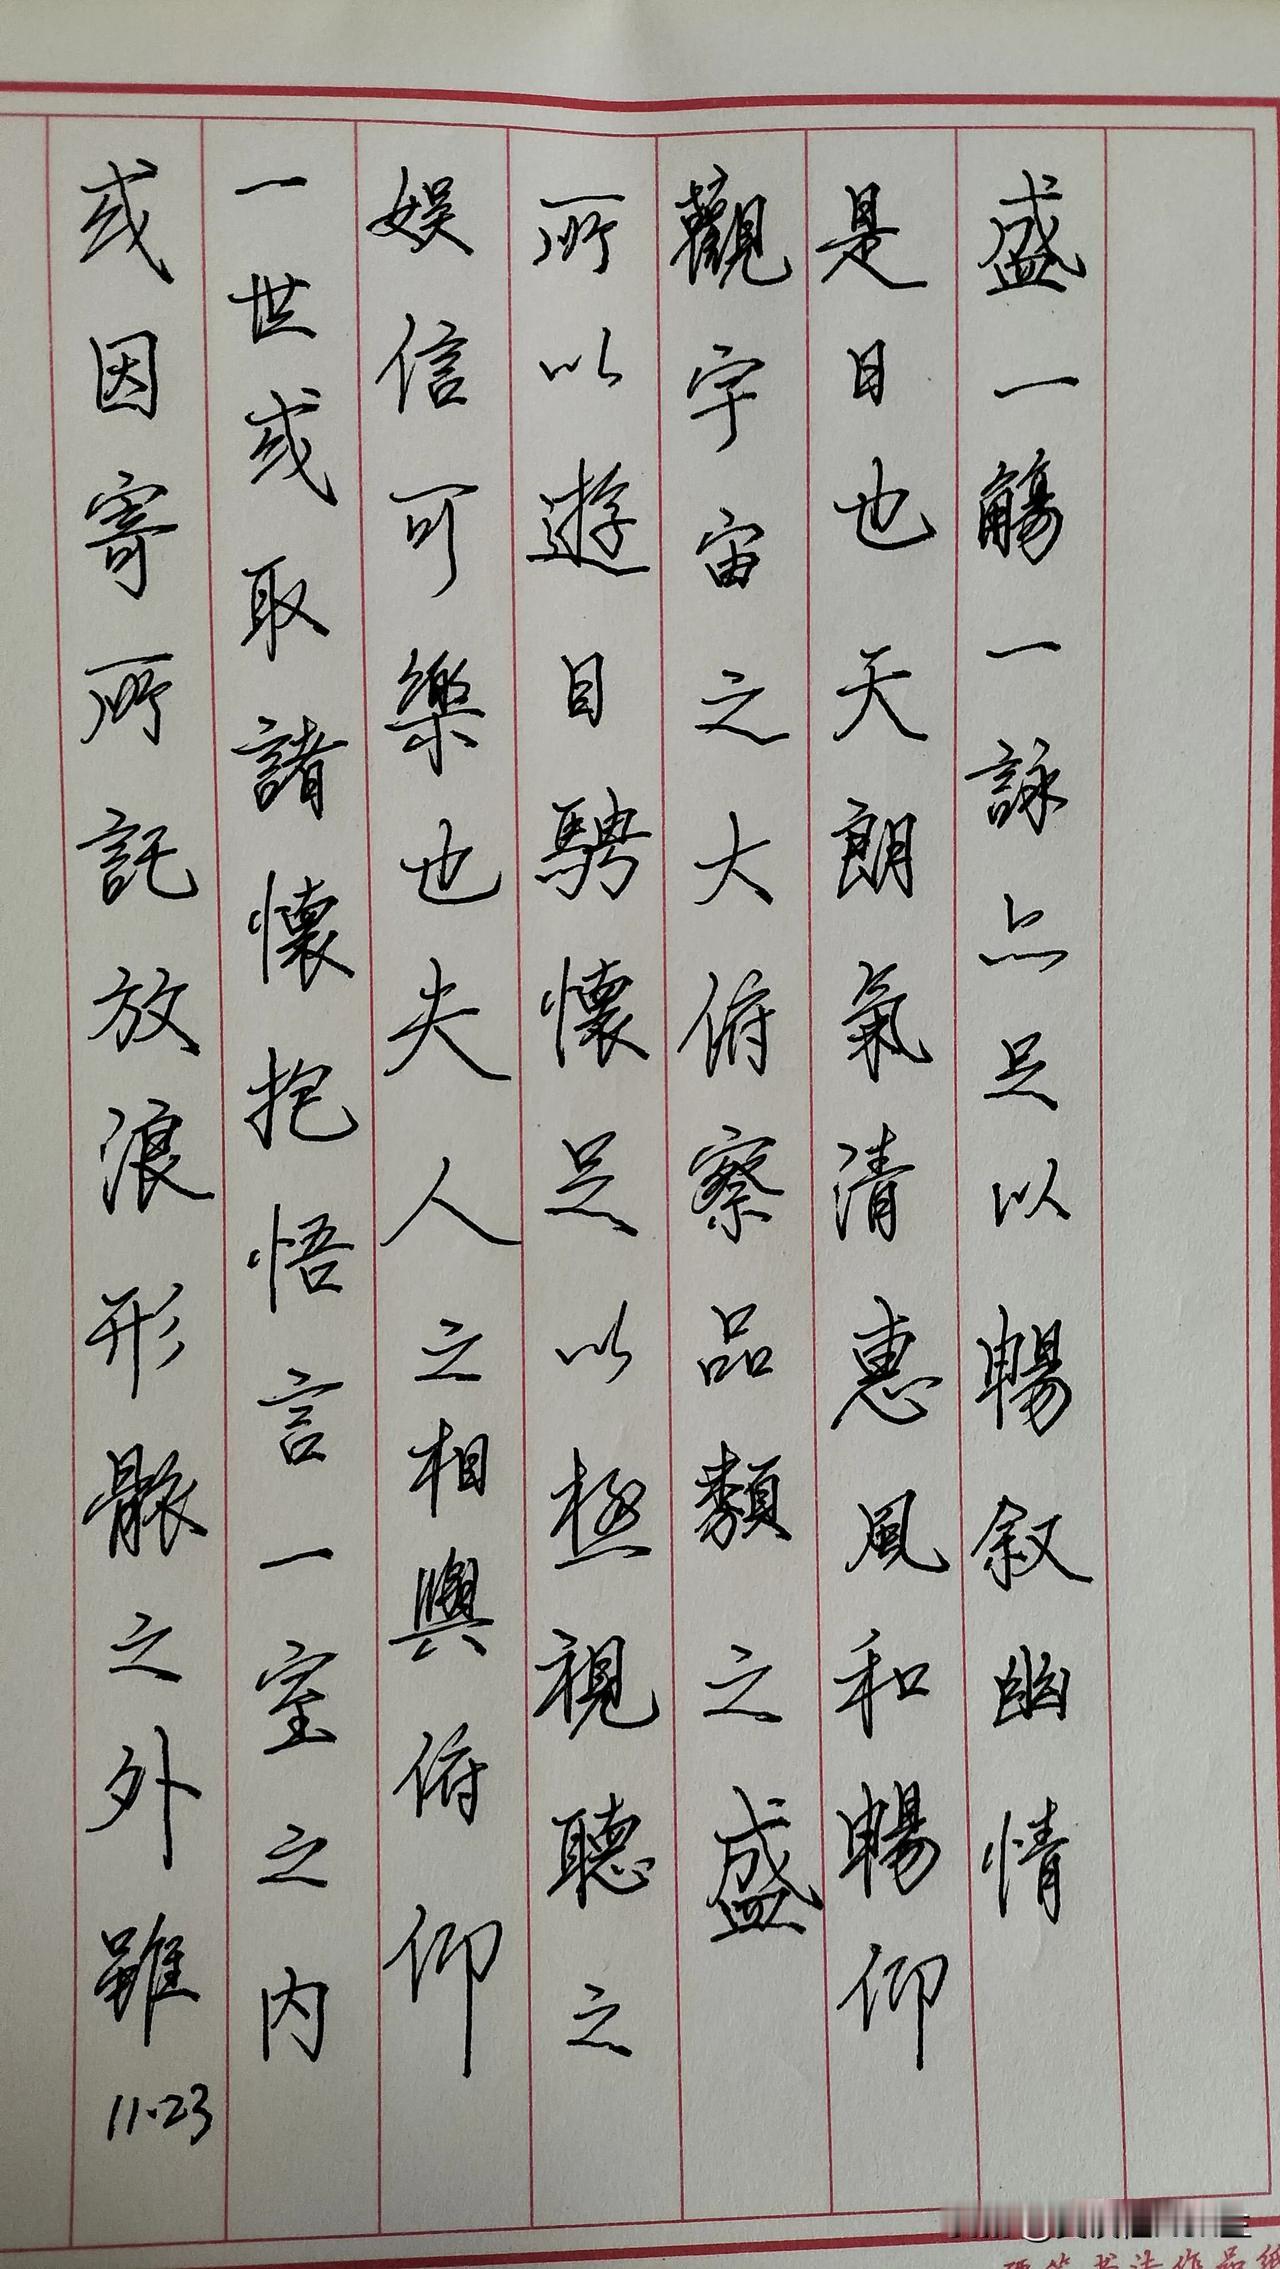 盛一觴一詠亦足以暢叙幽情
是日也天朗氣清惠風和暢仰
觀宇宙之大俯察品類之盛
所以遊目騁懷足以極視聽之
娱信可樂也夫人之相與俯仰
一世或取諸懷抱悟言一室之内
或因寄所託放浪形骸之外雖
11.23
硬笔书法作品纸